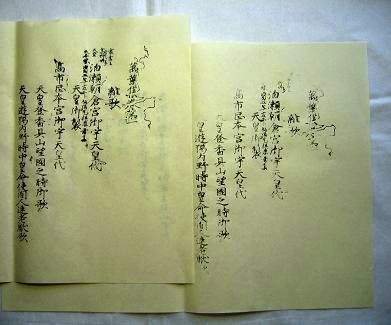 萬葉集
雜歌
泊瀬朝倉宮御宇天皇代
天皇御製
高市岡本宮御宇天皇代
天皇登香具山望國之時御歌
皇遊獵内野時中皇命使間人連老獻歌
萬葉集
雜歌
泊瀬朝倉宮御宇天皇代
天皇御製
高市岡本宮御宇天皇代
天皇登香具山望國之時御歌
天皇遊獵内野時中皇命使間人連老獻歌